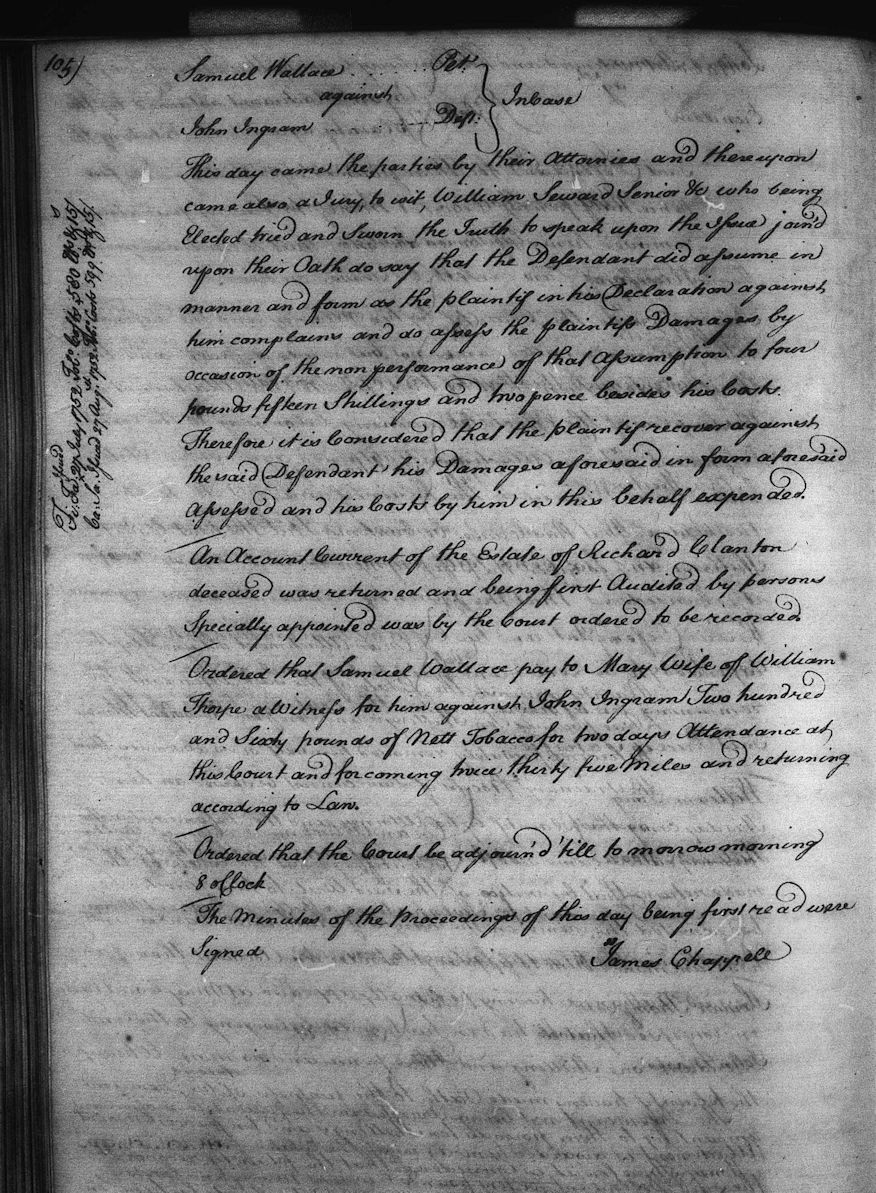 105)
Samuel Wallace ...... Pet.
against
John Ingram ...... Deft.
In Case
This day came the parties by their Attornies and thereupon
came also a Jury, to wit, William Seward Senior &c who being
Elected tried and Sworn the Truth to speak upon the Issue join'd
upon their Oath do say that the Defendant did assume in
manner and form as the plaintif in his Declaration against
him complains and do assess the plaintifs Damages by
occasion of the non performance of that Assumption to four
pounds fifteen Shillings and two pence besides his Costs.
Therefore it is Considered that the plaintif recover against
the said Defendant his Damages aforesaid in form aforesaid
Assessed and his Costs by him in this behalf expended.
An Account Current of the Estate of Richard Clanton
deceased was returned and being first Audited by persons
Specially appointed was by the Court ordered to be recorded.
Ordered that Samuel Wallace pay to Mary Wife of William
Thorpe a Witness for him against John Ingram Two hundred
and Sixty pounds of Nett Tobacco for two days Attendance at
this Court and for coming twice thirty five Miles and returning
according to Law.
Ordered that the Court be adjourn'd 'till to morrow morning
8 oClock
The Minutes of the Proceedings of this day being first read were
Signed
James Chappell
Fi: Fa: 27 July 1752 Costs 580
Ca: Sa: Issued 27 Aug. 1752 Costs 599